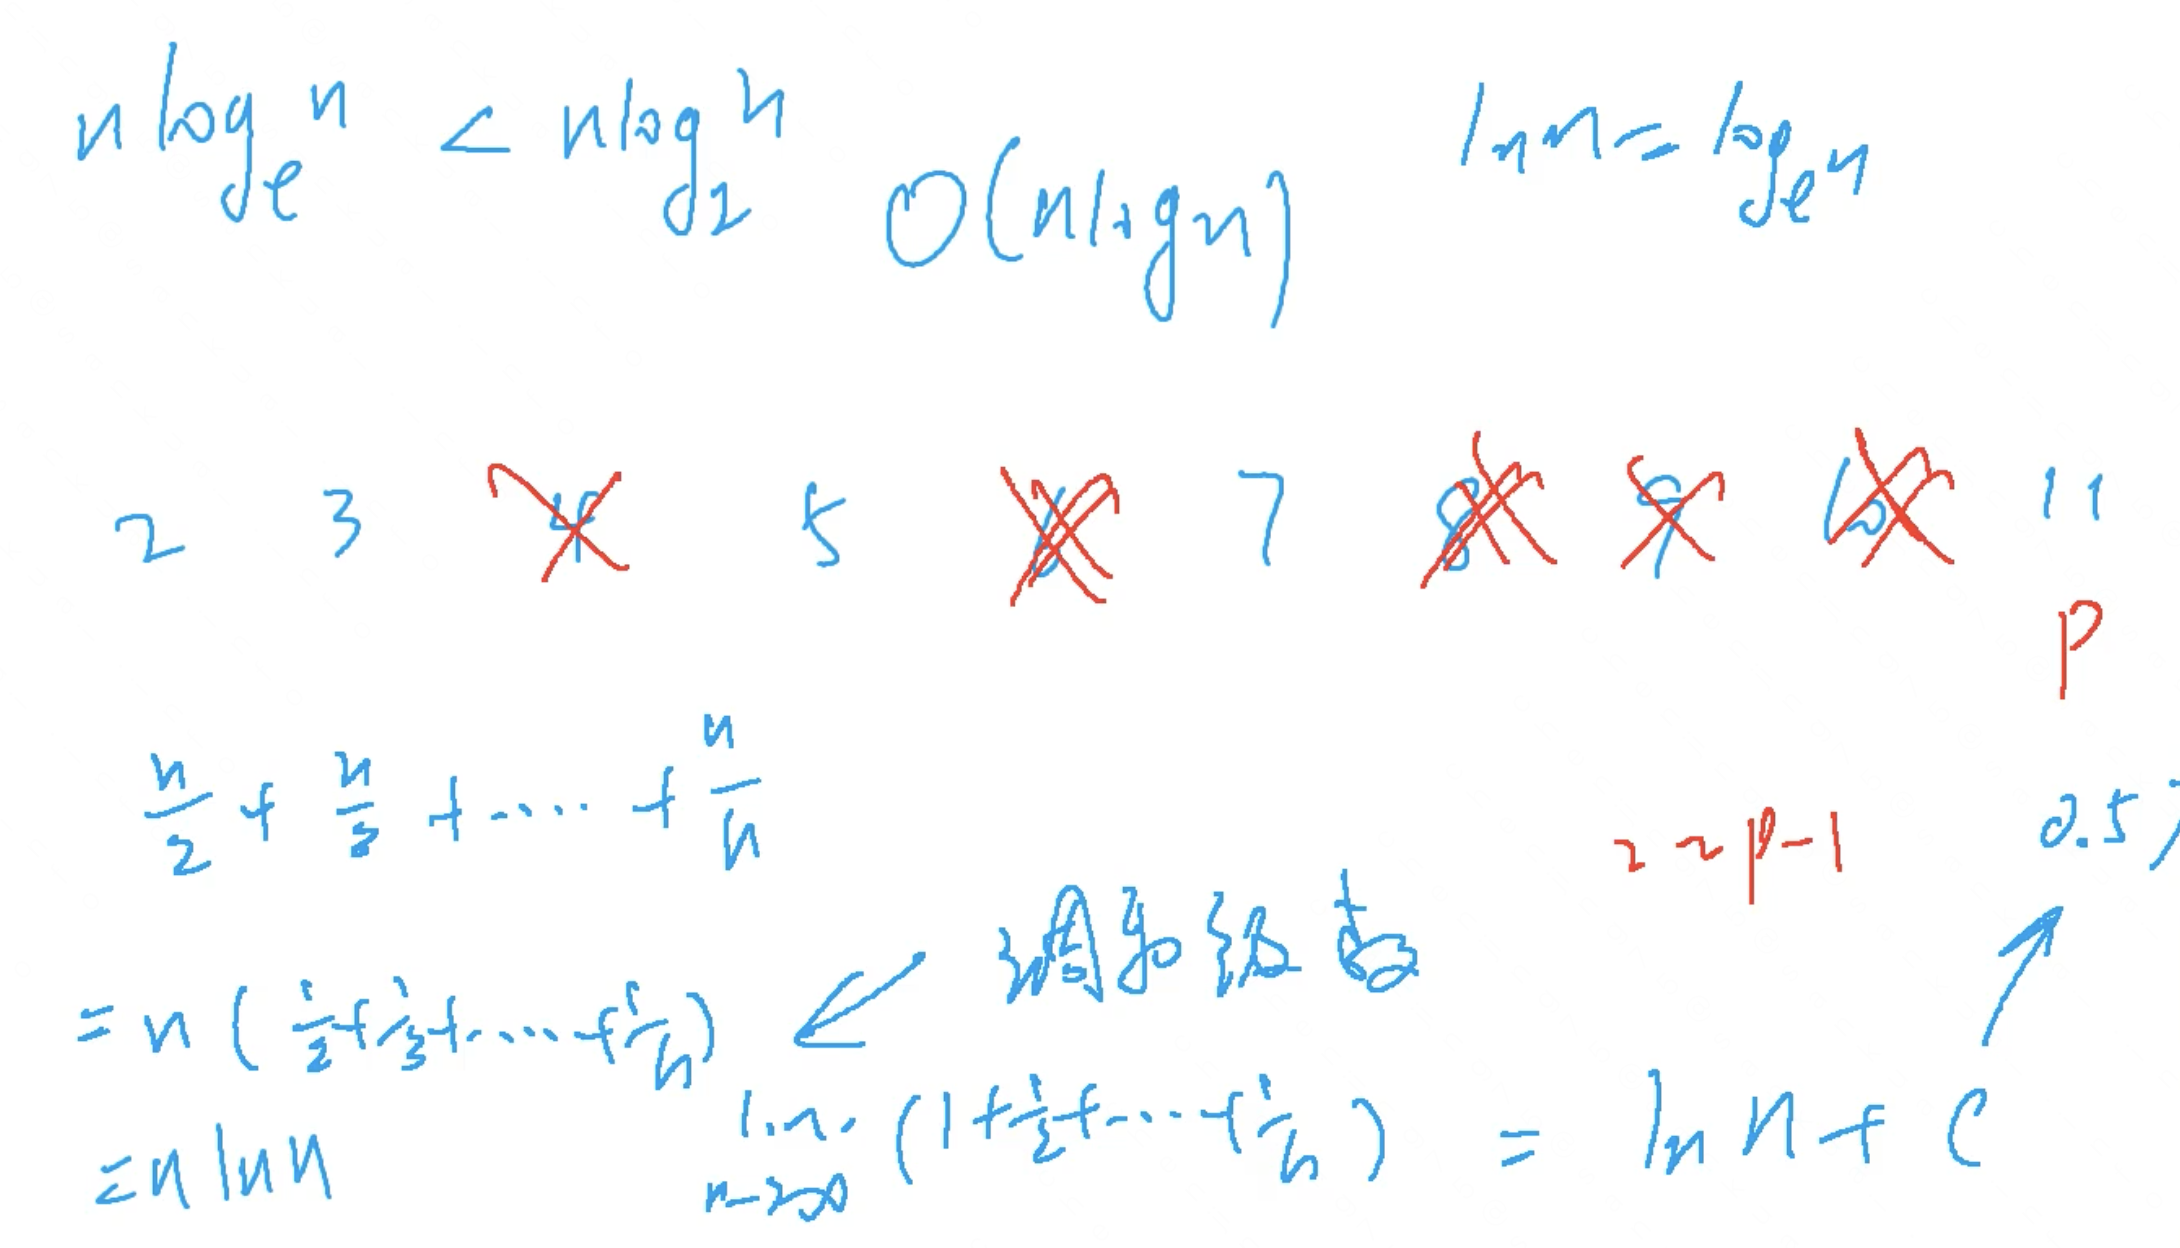 n log_e n < n log_2 n
O(n log n)
ln n = log_e n
2 3 4 5 6 7 8 9 10 11
p
n/2 + n/3 + ..... + n/n
2 ~ p-1
0.57
= n ( 1/2 + 1/3 + ..... + 1/n )
调和级数
lim n->∞ ( 1 + 1/2 + ..... + 1/n ) = ln n + C
= n ln n